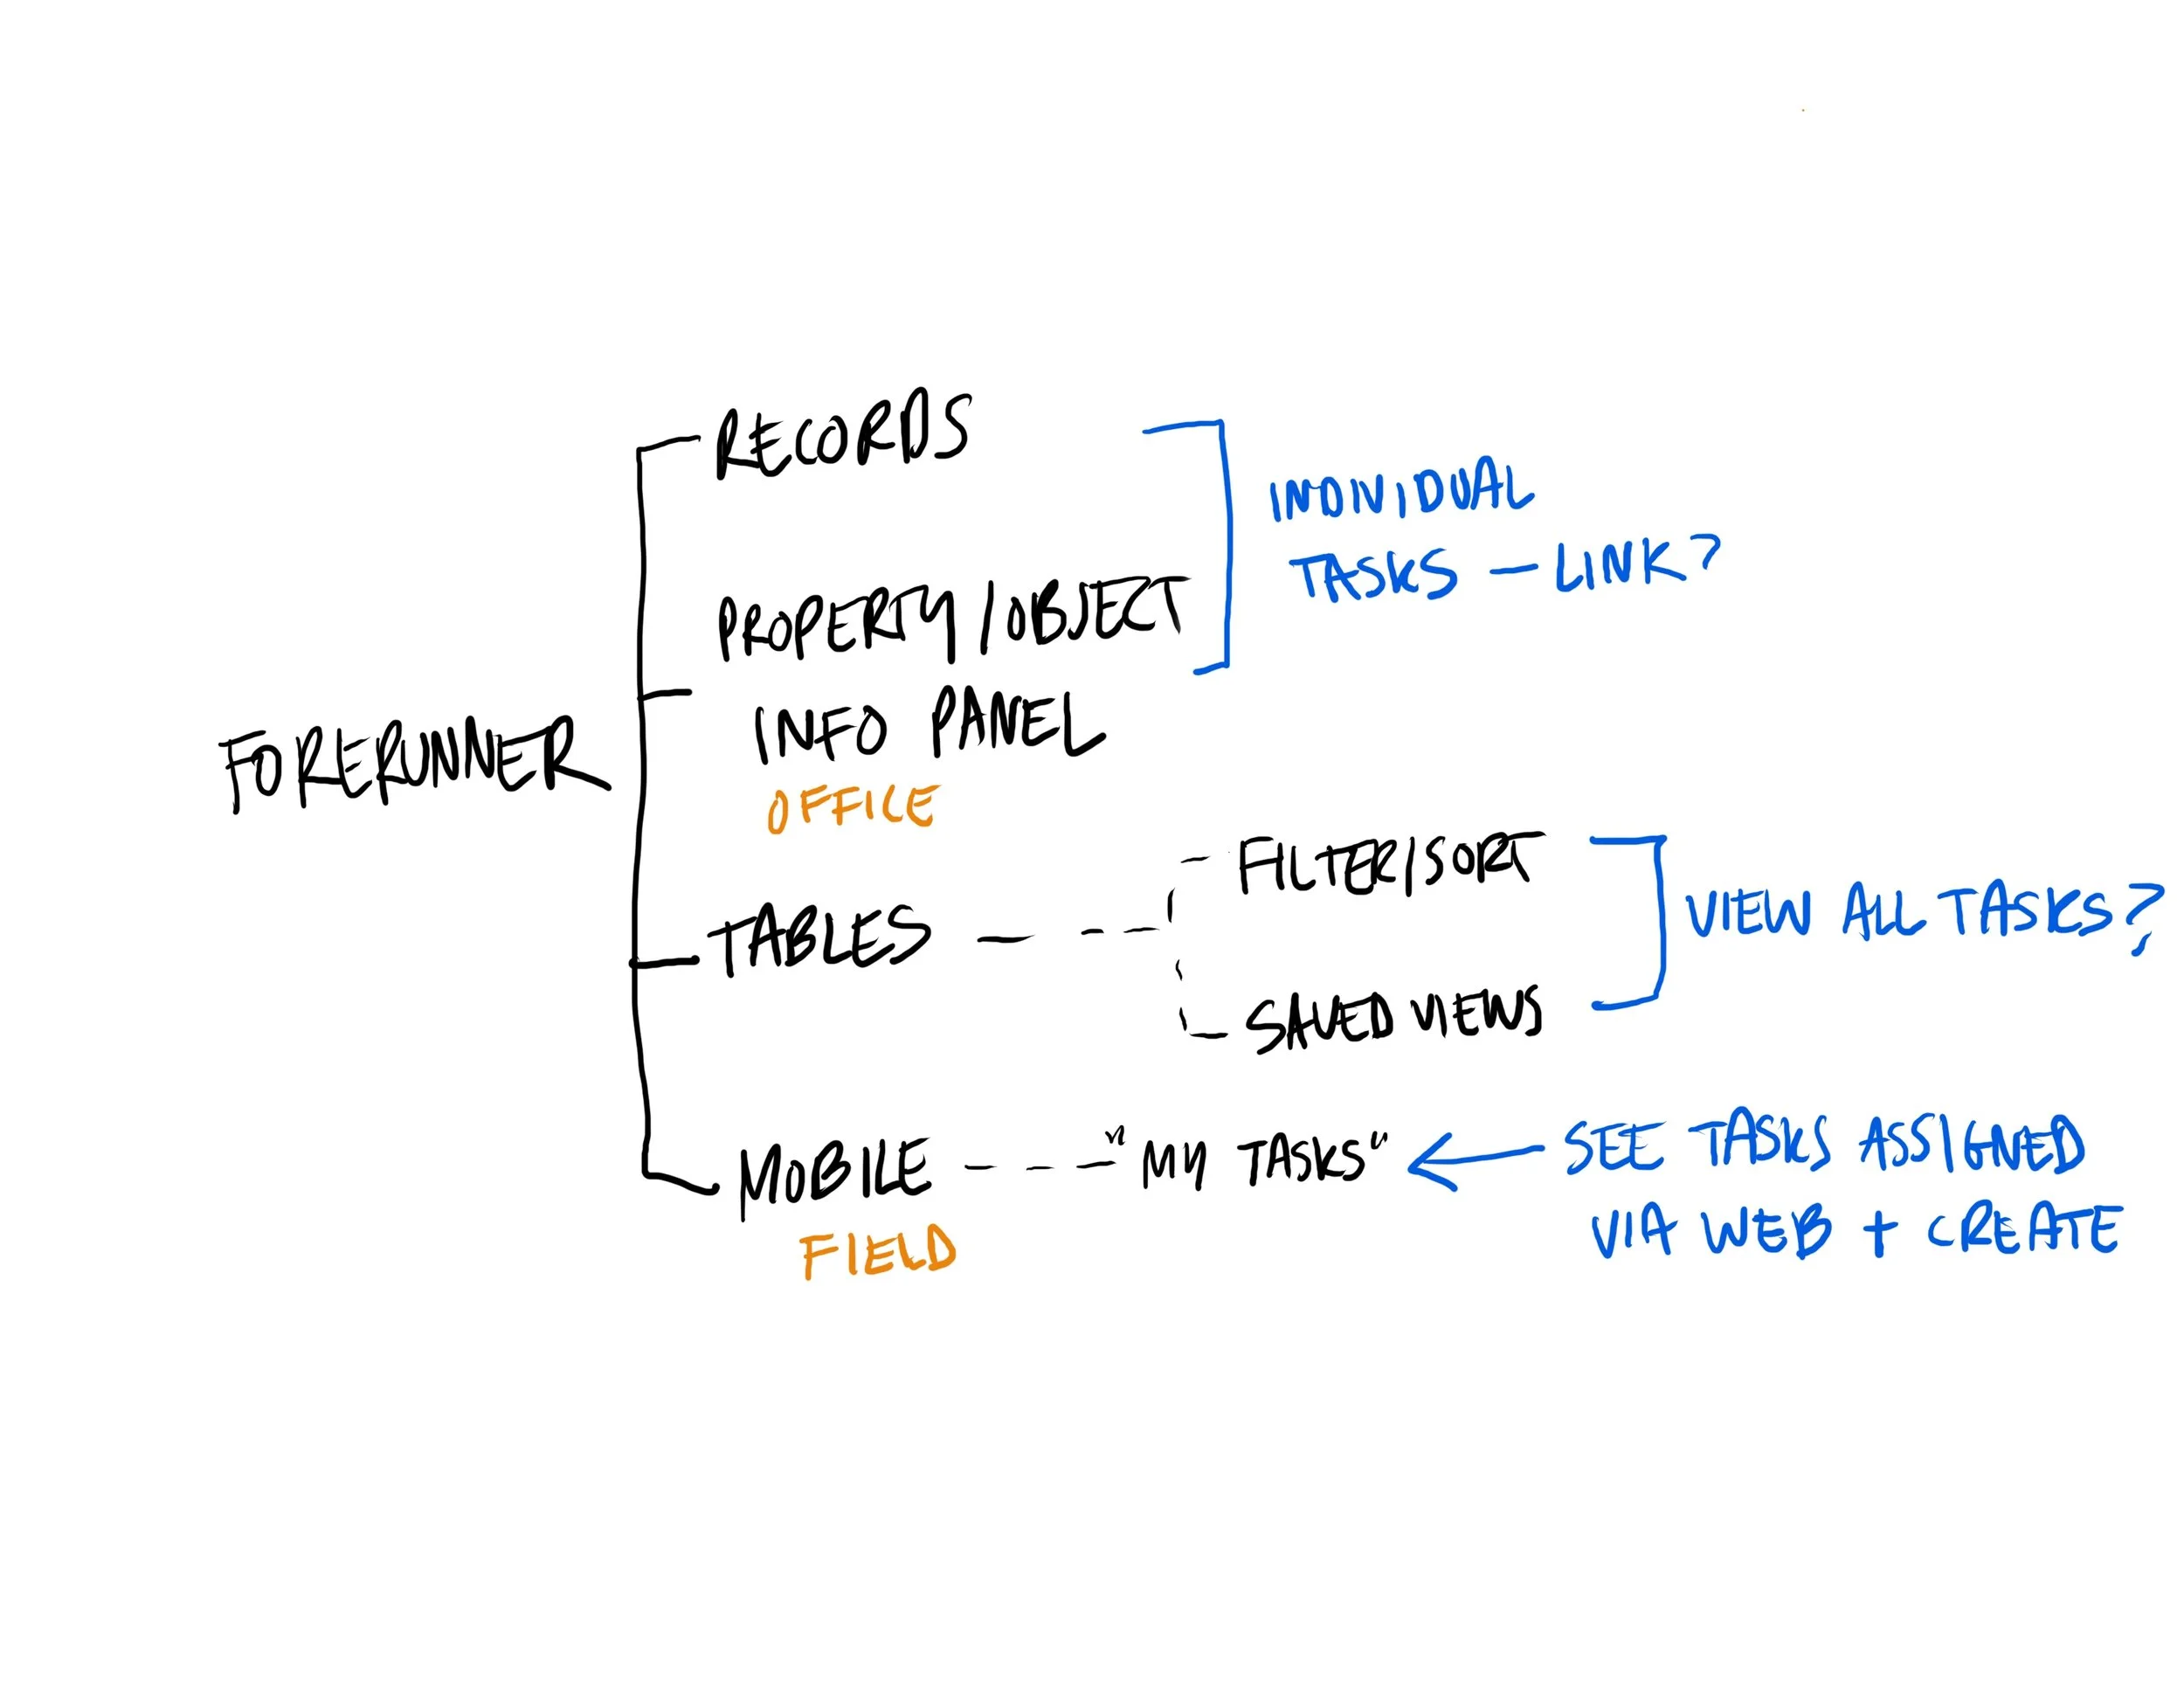 RECORDS
INDIVIDUAL
TASKS — LINK?
PROPERTY/OBJECT
INFO PANEL
OFFICE
FORERUNNER
FILTER/SORT
TABLES
VIEW ALL TASKS?
SAVED VIEWS
MOBILE --- "MY TASKS"
SEE TASKS ASSIGNED
VIA WEB + CREATE
FIELD